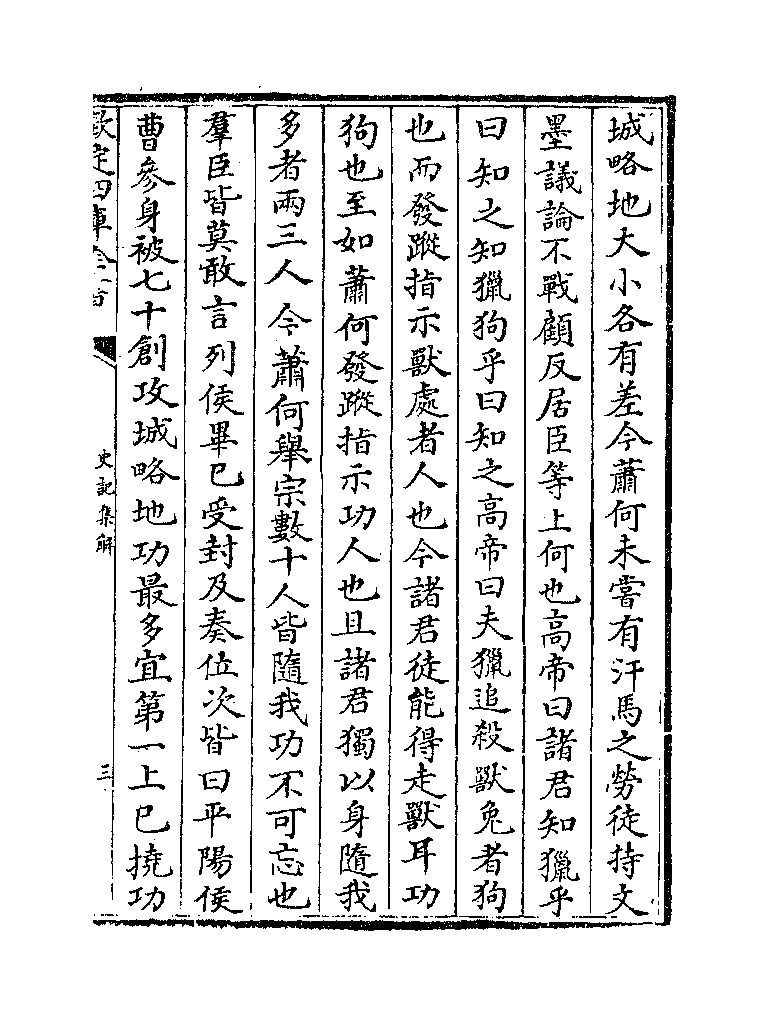 城略地大小各有差今蕭何未嘗有汗馬之勞徒持文
墨議論不戰顧反居臣等上何也高帝曰諸君知獵乎
曰知之知獵狗乎曰知之高帝曰夫獵追殺獸兔者狗
也而發蹤指示獸處者人也今諸君徒能得走獸耳功
狗也至如蕭何發蹤指示功人也且諸君獨以身隨我
多者兩三人今蕭何舉宗數十人皆隨我功不可忘也
羣臣皆莫敢言列侯畢已受封及奏位次皆曰平陽侯
曹參身被七十創攻城略地功最多宜第一上已撓功
欽定四庫全書
史記集解
三